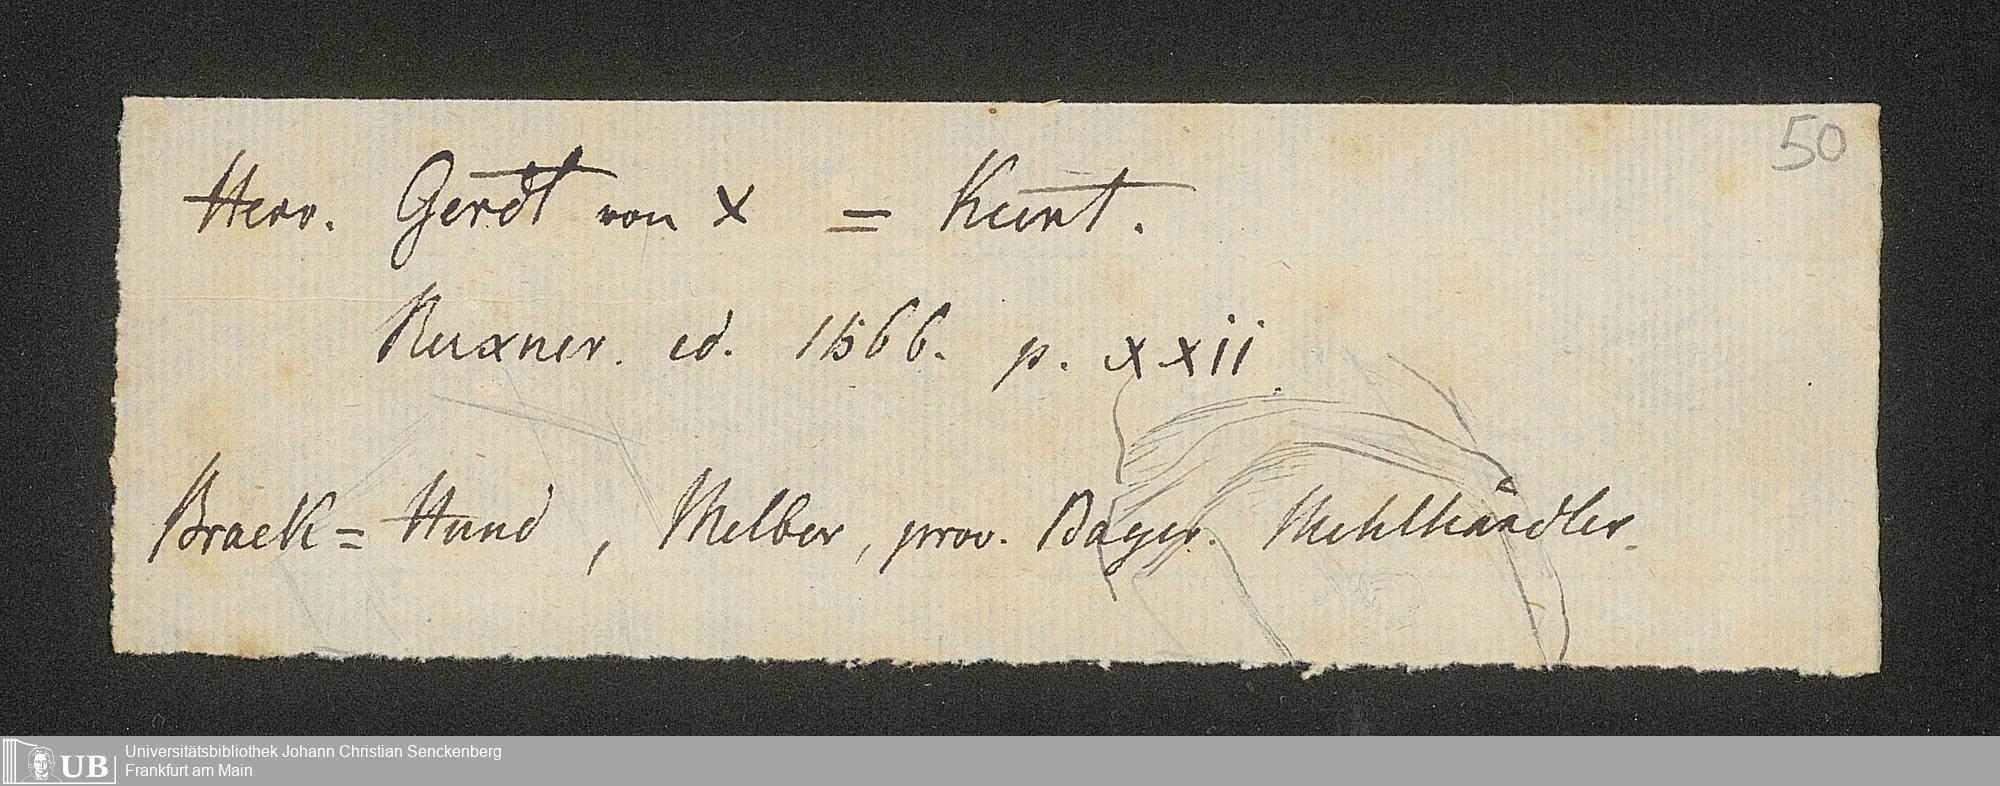 50
Herr. Gerdt von X = Kunt.
Ruxner. ed. 1566. p. xxii.
Brack = Hund, Melber, prov. Bayer. Mehlhändler.
UB
Universitätsbibliothek Johann Christian Senckenberg
Frankfurt am Main